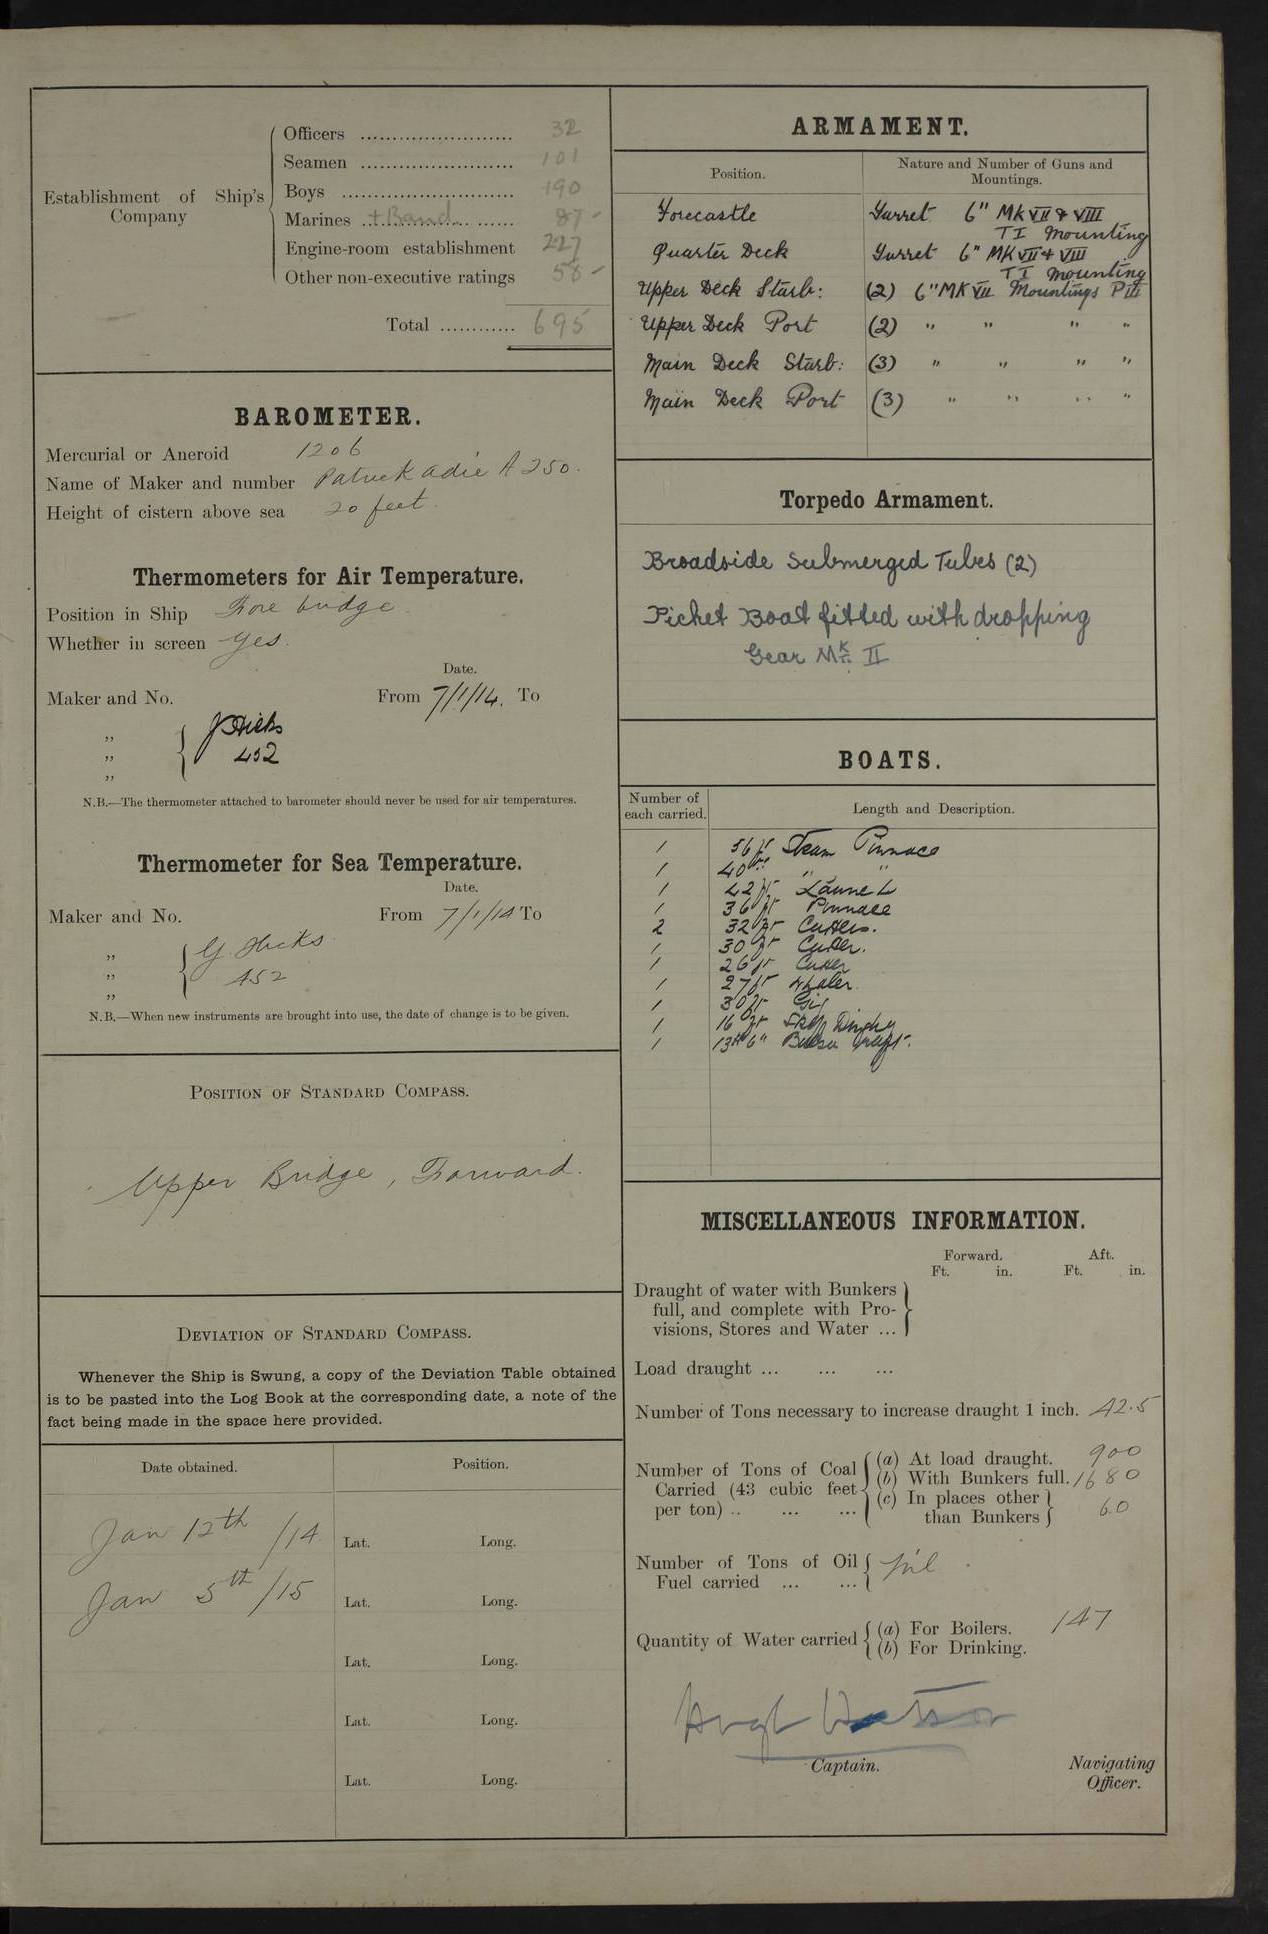 Establishment of Ship's Company
Officers ........................ 32
Seamen ........................ 101
Boys ........................... 190
Marines + Band ...... 87 -
Engine-room establishment 227
Other non-executive ratings 58 -
Total ............ 695
BAROMETER.
Mercurial or Aneroid 1206
Name of Maker and number Patrick Adie A 250.
Height of cistern above sea 20 feet.
Thermometers for Air Temperature.
Position in Ship Fore bridge
Whether in screen Yes.
Date.
Maker and No. From 7/1/14. To
„ J Hicks
„ 452
„
N.B.—The thermometer attached to barometer should never be used for air temperatures.
Thermometer for Sea Temperature.
Date.
Maker and No. From 7/1/14 To
„ Hicks
„ 452
„
N.B.—When new instruments are brought into use, the date of change is to be given.
POSITION OF STANDARD COMPASS.
Upper Bridge, Forward.
DEVIATION OF STANDARD COMPASS.
Whenever the Ship is Swung, a copy of the Deviation Table obtained
is to be pasted into the Log Book at the corresponding date, a note of the
fact being made in the space here provided.
Date obtained. Position.
Jan 12th /14 Lat. Long.
Jan 5th /15 Lat. Long.
Lat. Long.
Lat. Long.
Lat. Long.
ARMAMENT.
Position. Nature and Number of Guns and Mountings.
Forecastle Turret 6" MK VII & VIII
TI Mounting
Quarter Deck Turret 6" MK VII & VIII
TI Mounting
Upper Deck Starb: (2) 6" MK VII Mountings P III
Upper Deck Port (2) " " " "
Main Deck Starb: (3) " " " "
Main Deck Port (3) " " " "
Torpedo Armament.
Broadside Submerged Tubes (2)
Picket Boat fitted with dropping
Gear Mk II
BOATS.
Number of each carried. Length and Description.
1 56 ft Steam Pinnace
1 40 ft " "
1 42 ft Launch
1 36 ft Pinnace
2 32 ft Cutters.
1 30 ft Cutter.
1 26 ft Cutter
1 27 ft Whaler
1 30 ft Gig
1 16 ft Skiff Dinghy
1 13ft 6" Balsa Raft.
MISCELLANEOUS INFORMATION.
Forward. Aft.
Ft. in. Ft. in.
Draught of water with Bunkers
full, and complete with Pro-
visions, Stores and Water ...
Load draught ... ... ...
Number of Tons necessary to increase draught 1 inch. 42.5
Number of Tons of Coal Carried (43 cubic feet per ton) .. ... ...
(a) At load draught. 900
(b) With Bunkers full. 1680
(c) In places other than Bunkers 60
Number of Tons of Oil Fuel carried ... ... Nil
Quantity of Water carried
(a) For Boilers. 147
(b) For Drinking.
Hugh Watson
Captain. Navigating Officer.